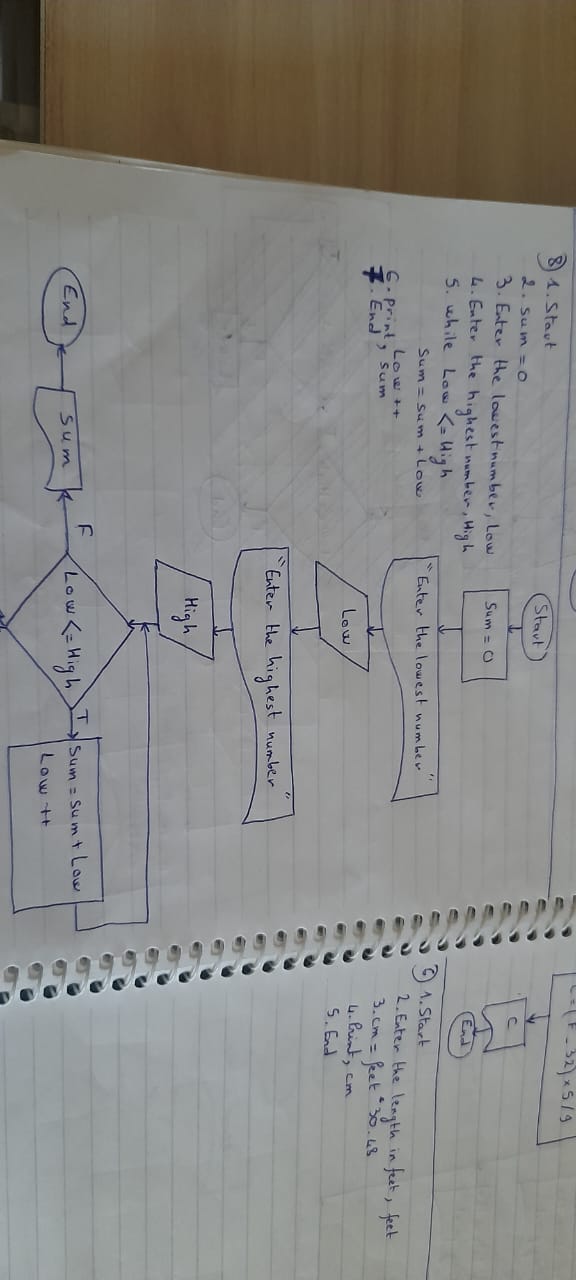 8) 1. Start
2. Sum = 0
3. Enter the lowest number, Low
4. Enter the highest number, High
5. while Low <= High
Sum = Sum + Low
Low ++
6. Print, Sum
7. End
Start
Sum = 0
"Enter the lowest number"
Low
"Enter the highest number"
High
Low <= High
T
Sum = Sum + Low
Low ++
F
Sum
End
C = (F - 32) × 5/9
C
End
6) 1. Start
2. Enter the length in feet, feet
3. cm = feet * 30.48
4. Print, cm
5. End